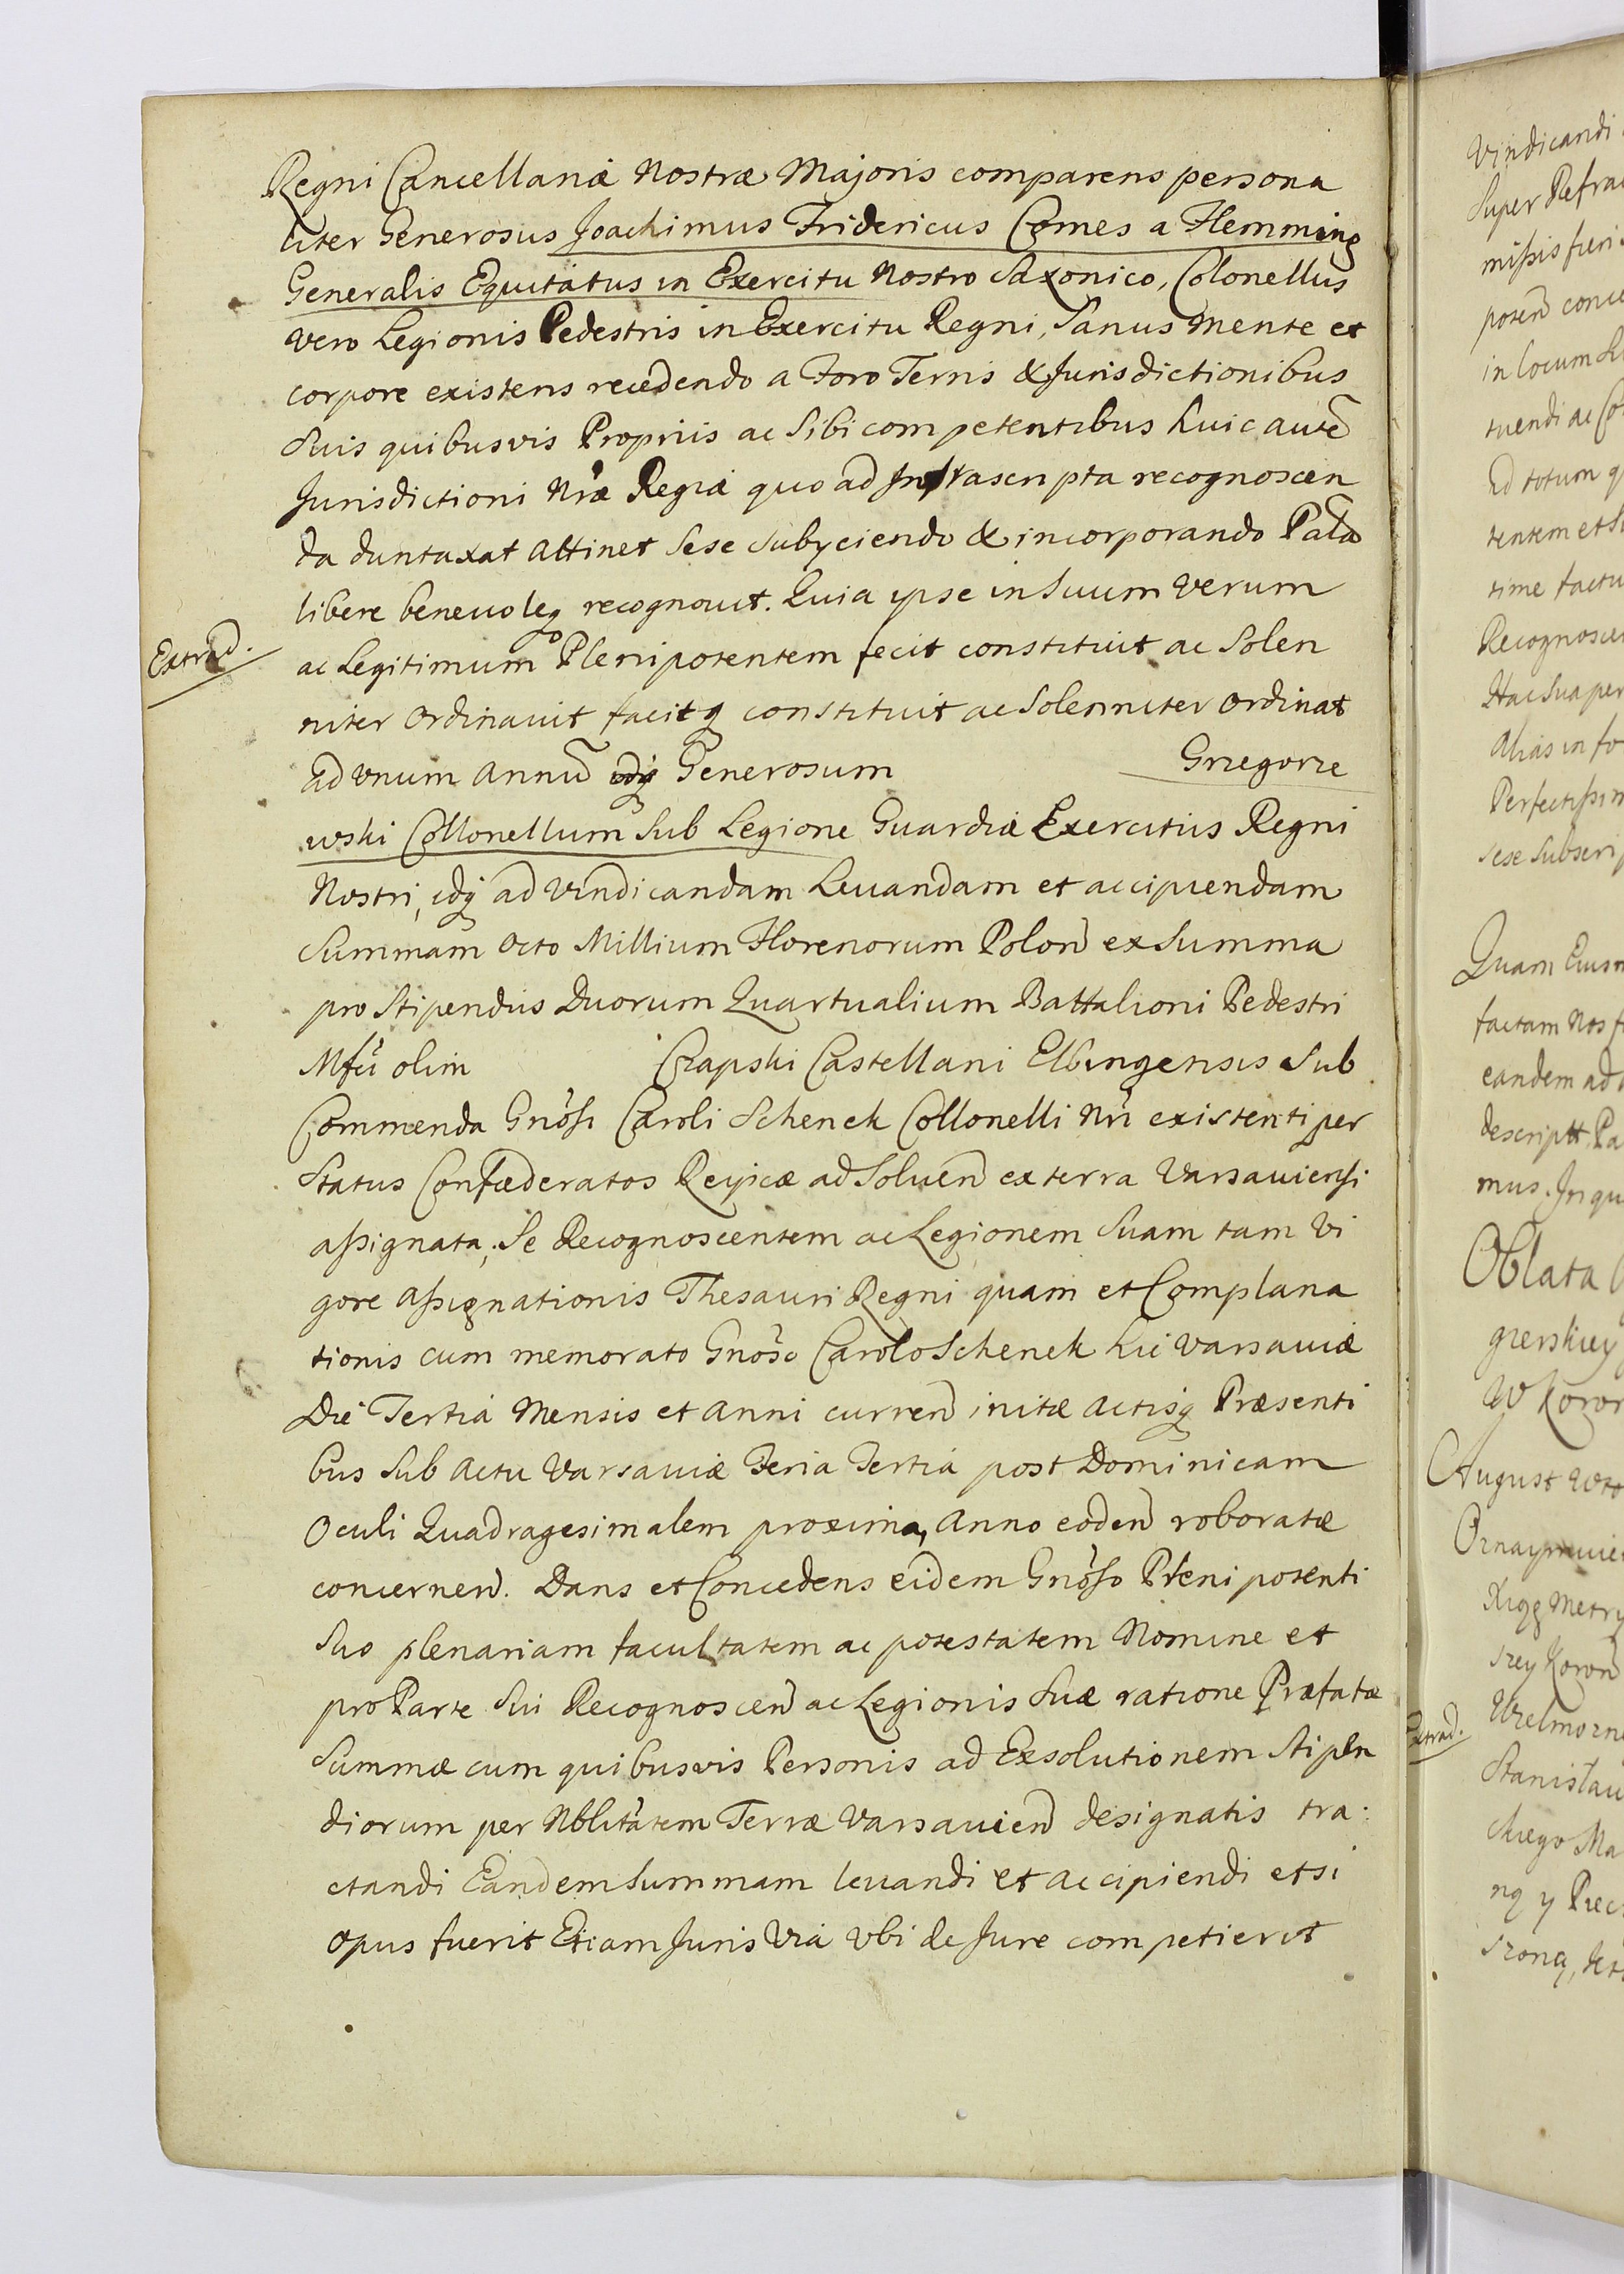 Regni Cancellariæ Nostræ Majoris comparens persona
liter Generosus Joachimus Fridericus Comes a Flemming
Generalis Equitatus in Exercitu Nostro Saxonico, Colonellus
vero Legionis Pedestris in Exercitu Regni, Sanus mente et
corpore existens recedendo a Foro Terris & Jurisdictionibus
Suis quibusvis Propriis ac Sibi competentibus huic autē
Jurisdictioni Nræ Regiæ quo ad Infrascripta recognoscen
da duntaxat attinet Sese Subyciendo & incorporando Palā
libere benevoleq recognovit. Quia ipse in Suum Verum
Extrad.
ac Legitimum Plenipotentem fecit constituit ac Solen
niter Ordinavit facitq constituit ac Solenniter Ordinat
ad Unum Annū Generosum Grzegorze
wski Collonellum Sub Legione Guardiæ Exercitus Regni
Nostri, idq ad Vindicandam Levandam et accipiendam
Summam Octo Millium Florenorum Polon ex Summa
pro Stipendiis Duorum Quartualium Battalioni Pedestri
Mfci olim Czapski Castellani Elbingensis Sub
Commenda Gnosi Caroli Schenck Collonelli Nri existenti per
Status Confœderatos Reipcæ ad Solven ex terra Varsaviensi
assignata, Se Recognoscentem ac Legionem Suam tam Vi
gore Assignationis Thesauri Regni quam et Complana
tionis cum memorato Gnoso Carolo Schenck hic Varsaviæ
Die Tertia Mensis et Anni curren initæ Actisq Præsenti
bus Sub Actu Varsaviæ Feria Tertia post Dominicam
Oculi Quadragesimalem proxima, Anno eoden roboratæ
concernen. Dans et Concedens eidem Gnoso Plenipotenti
Suo plenariam facultatem ac potestatem Nomine et
pro Parte Sui Recognoscen ac Legionis Suæ ratione Præfatæ
Summæ cum quibusvis Personis ad Exsolutionem Stipen
diorum per Nblitatem Terræ Varsavien designatis tra-
ctandi Eandem Summam levandi et accipiendi et si
opus fuerit Etiam Juris Via Ubi de Jure competierit
Vindicandi
Super
in locum
tuendi ac
Ed totum
tentem et
time
Hac Sua per
Alias in
Quam
factam Nos
eandem ad
mus. In
Oblata
August
Extrad.